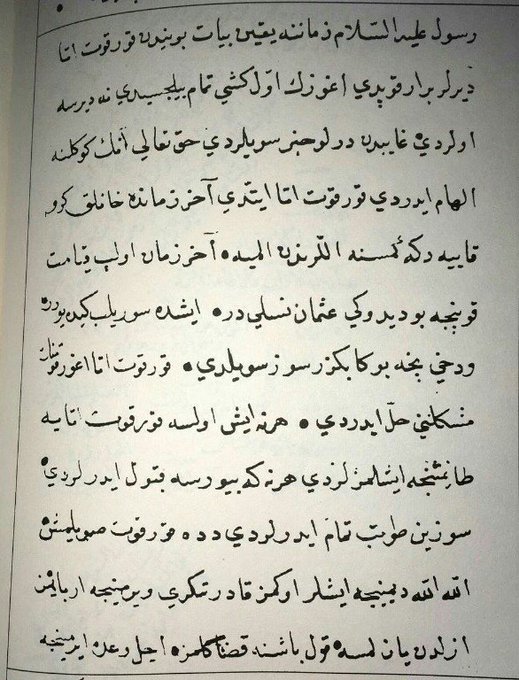 رسول علیه السّلام زماننه یقین بیات بویندن قورقوت اتا
دیرلر بر ار قوپدی اغوزك اوّل کشی تمام بیلجیسیدی نه دیرسه
اولردی غایبدن درلو خبر سویلردی حق تعالی انك کوکلنه
الهام ایدردی قورقوت اتا ایتدی آخر زمانده خانلق کرو
قاییه دکه کمسنه اللرندن المیه آخر زمان اولب قیامت
قوپنجه بو دیدوکی عثمان نسلی در ایشده سوریلب کیده یوره
و دخی نجه بوکا بکزر سوز سویلدی قورقوت اتا اغوز قومنك
مشکلنی حل ایدردی هر نه ایش اولسه قورقوت اتایه
طانشمنجه ایشلمزلردی هر نه که بیورسه قبول ایدرلردی
سوزین طوتب تمام ایدرلردی دده قورقوت صویلمش
الله الله دیمینجه ایشلر اوکمز قادر تنکری ویرمینجه ار بایمز
ازلدن یازلمسه قول باشنه قضا کلمز اجل وعده ایرمینجه